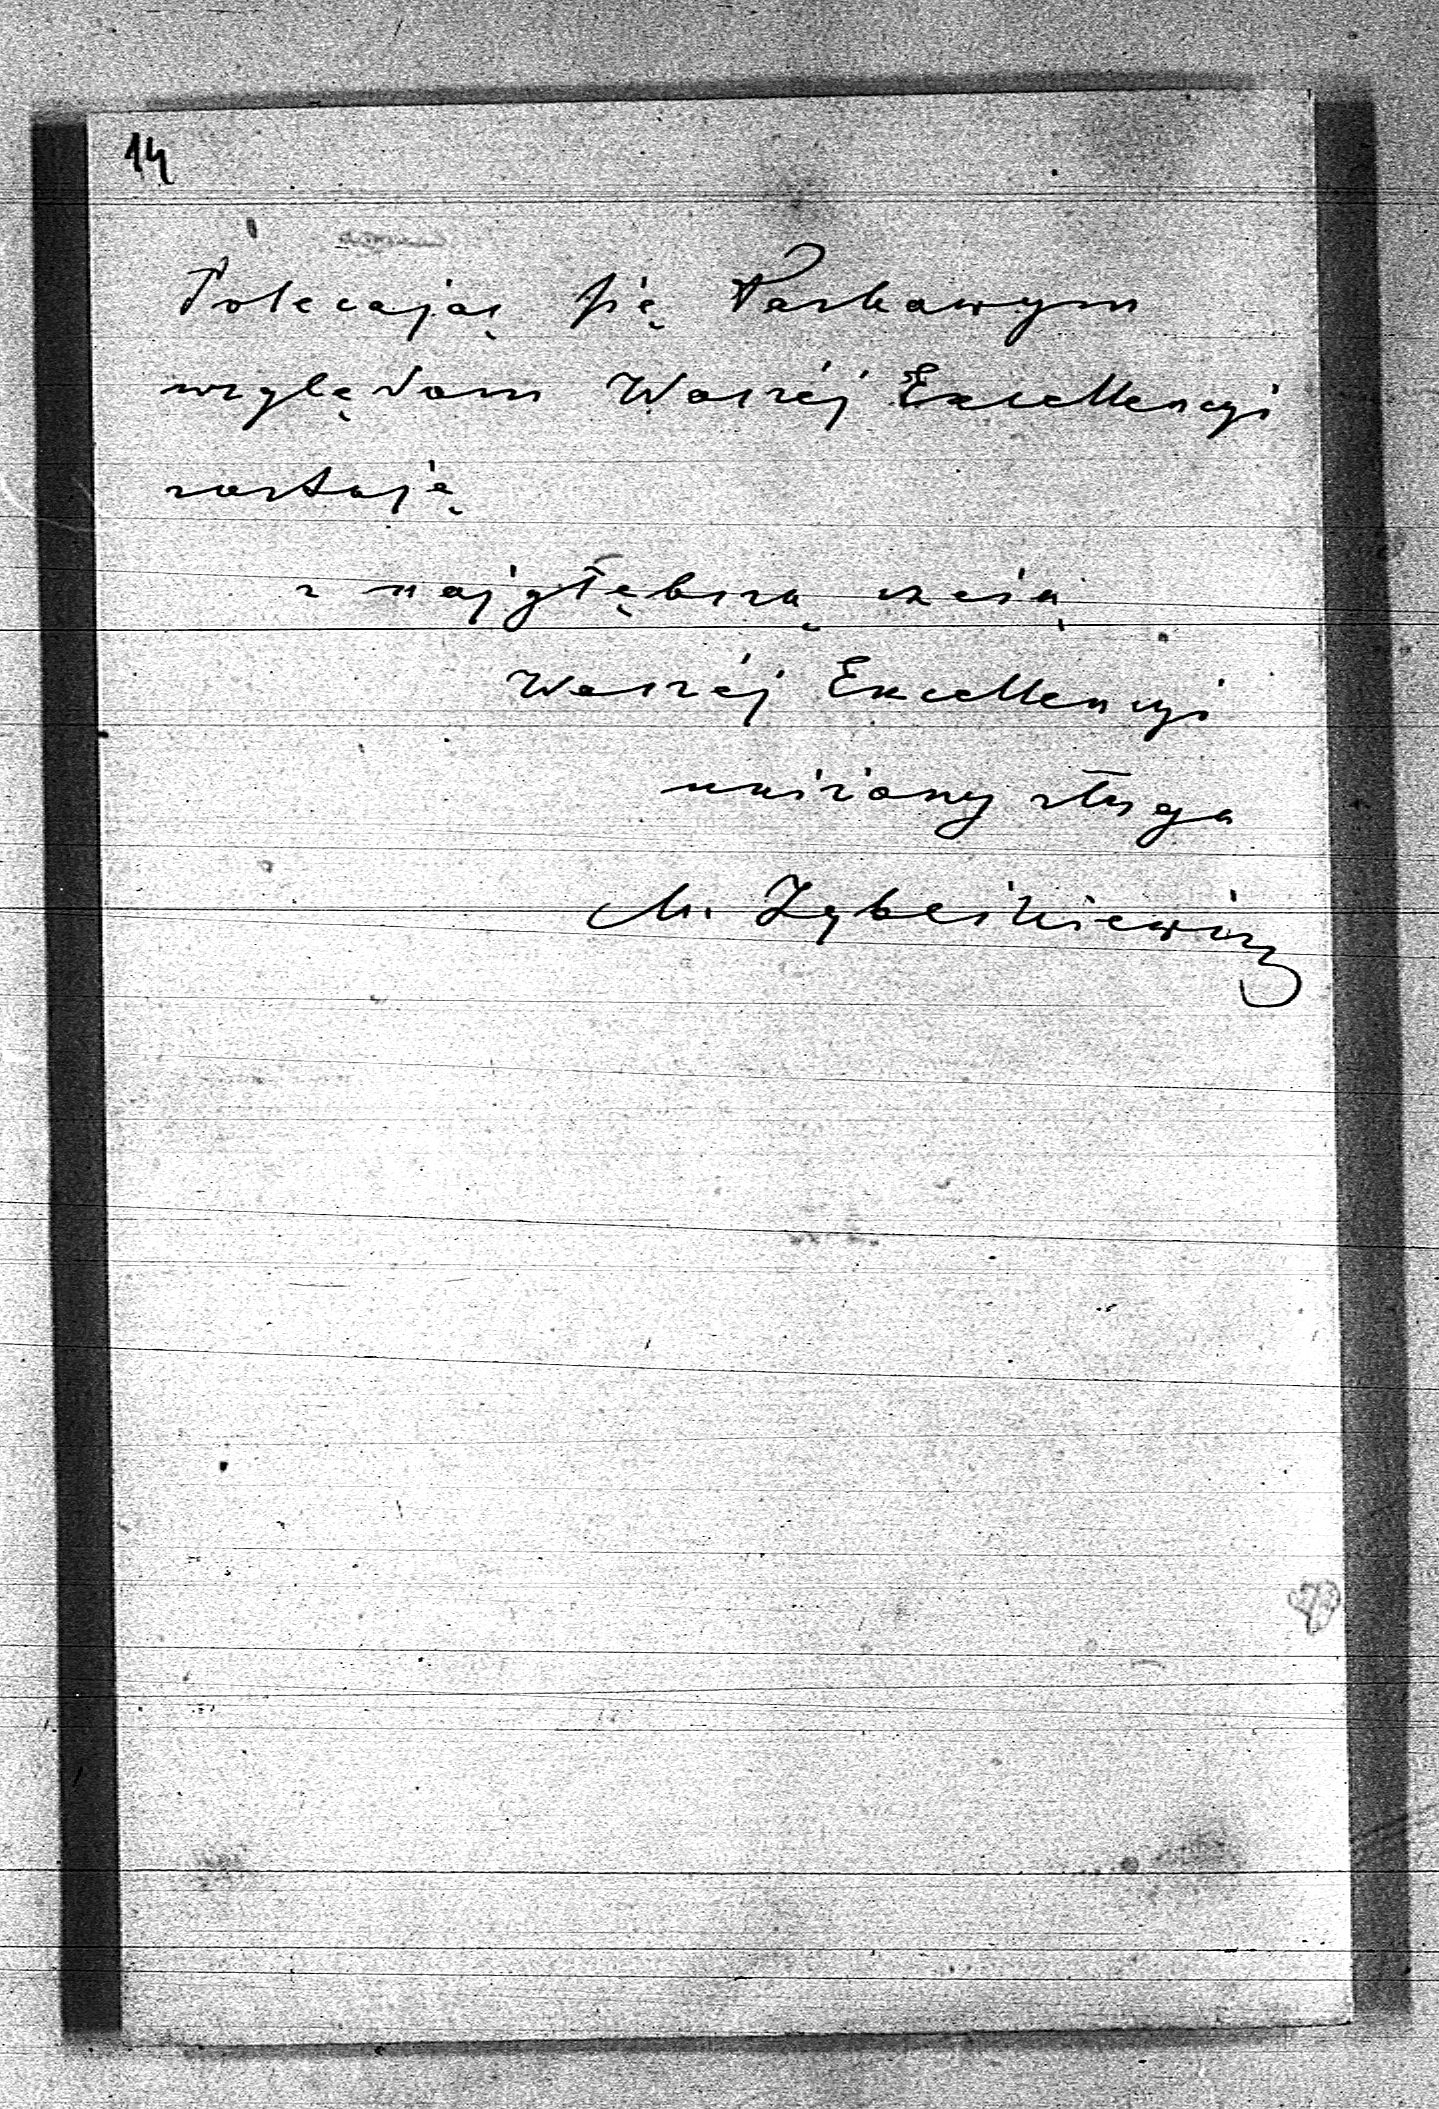 14
Polecając się łaskawym
względom Waszéj Excellencyi
zostaję
z najgłębszą czcią
Waszéj Excellencyi
uniżony sługa
M. Zyblikiewicz